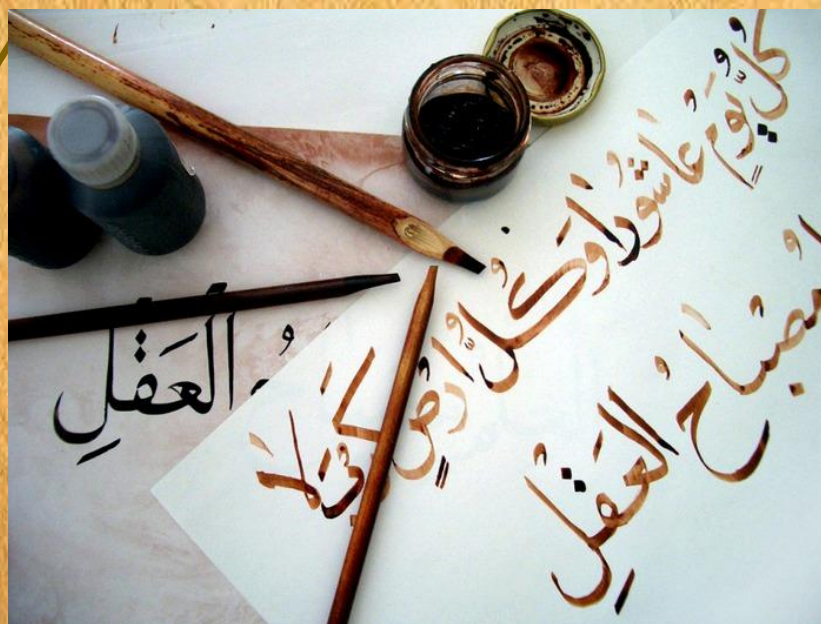 كُلُّ يَّومٍ عاشُورا وَكُلُّ ارضٍ كَربَلا
مصباحُ العَقلِ
العَقلِ